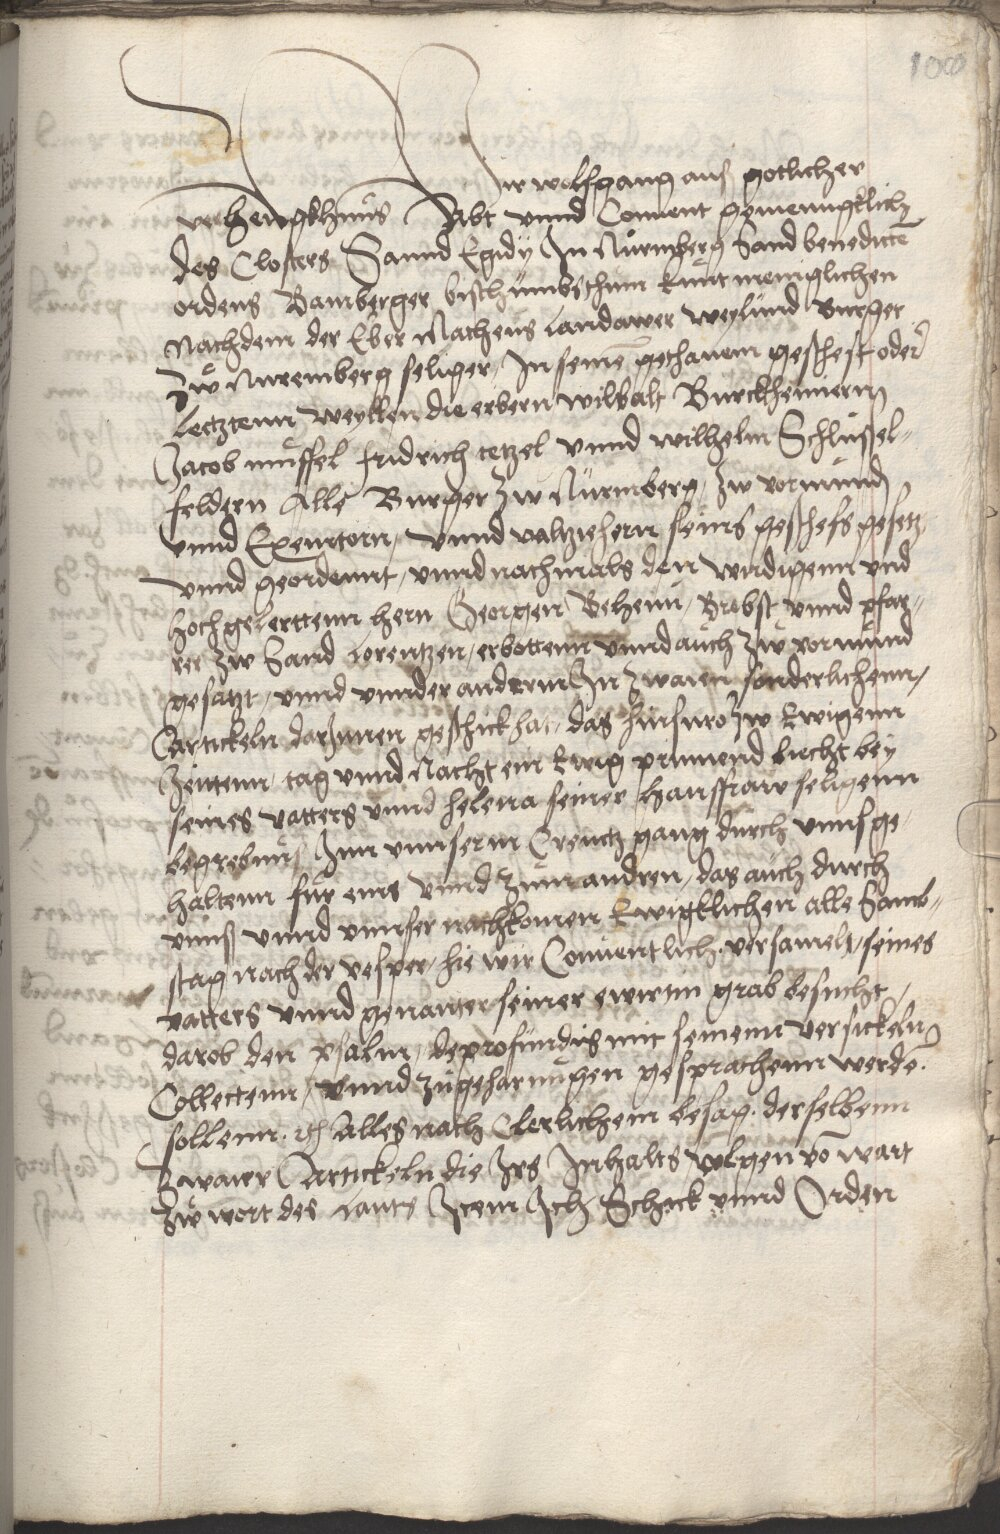 100
Wir wolfgang auß gotlicher
verhengkhnus Abt vnnd Conuent gemeingklich
des Closters Sannd Egidij In Nürmberg Sand benedictē
ordens Bamberger bisthumbs thun kunt meniglichen
Nachdem der Erber Matheus Landawer weylund burger
Zw Nuremberg seliger, In seinē gethanem gescheft oder
Letztenn weyllen die erbern wilbalt Burckheimern
Jacob müffel fridrich tetzel vnnd wilhelm Schlüssel-
feldern Alle Burger Zw Nürmberg, Zw vormund
vnnd Exeurtorn, vnnd valziehern seins geschefs gesetz
vnnd geordennt, vnnd nachmals den wirdigenn vnd
hochgelerttenn hern Georgen Beheim, Brobst vnnd pfar-
rer Zw Sand Lorentzen, erbottenn vnnd auch Zw vormund
gesatzt, vnnd vnnder anderm In Zwaien sonderlichenn,
Cartickeln darInnen geschickt hat, das hinfuro Zw Ewigenn
Zeittenn, tag vnnd Nacht ein Ewig prinnend liecht bey
seines vatters vnnd helena seiner hausfraw seligenn
begrebnus, Inn vnnserm Creutzgang durch vnns ge-
haltenn für eins vnnd Zum andren, das auch durch
vnnß vnnd vnnser nachkomen Ewigklichen alle Sambs-
stag nach der vesper, hie wir Conuentlich versamelt, seines
vatters vnnd genanter seiner ewirtin grab besucht,
darob den psalm, deprofundis mit seinenn versickeln
Collectenn, vnnd Zugeharungen gesprachenn werdē
sollenn. ec Alles nach Clerlichem besag. derselbenn
Zwaier Artickeln die Irs Inhalts volgen vō wart
Zw wort des Lauts Item Ich Schick vnnd Orden